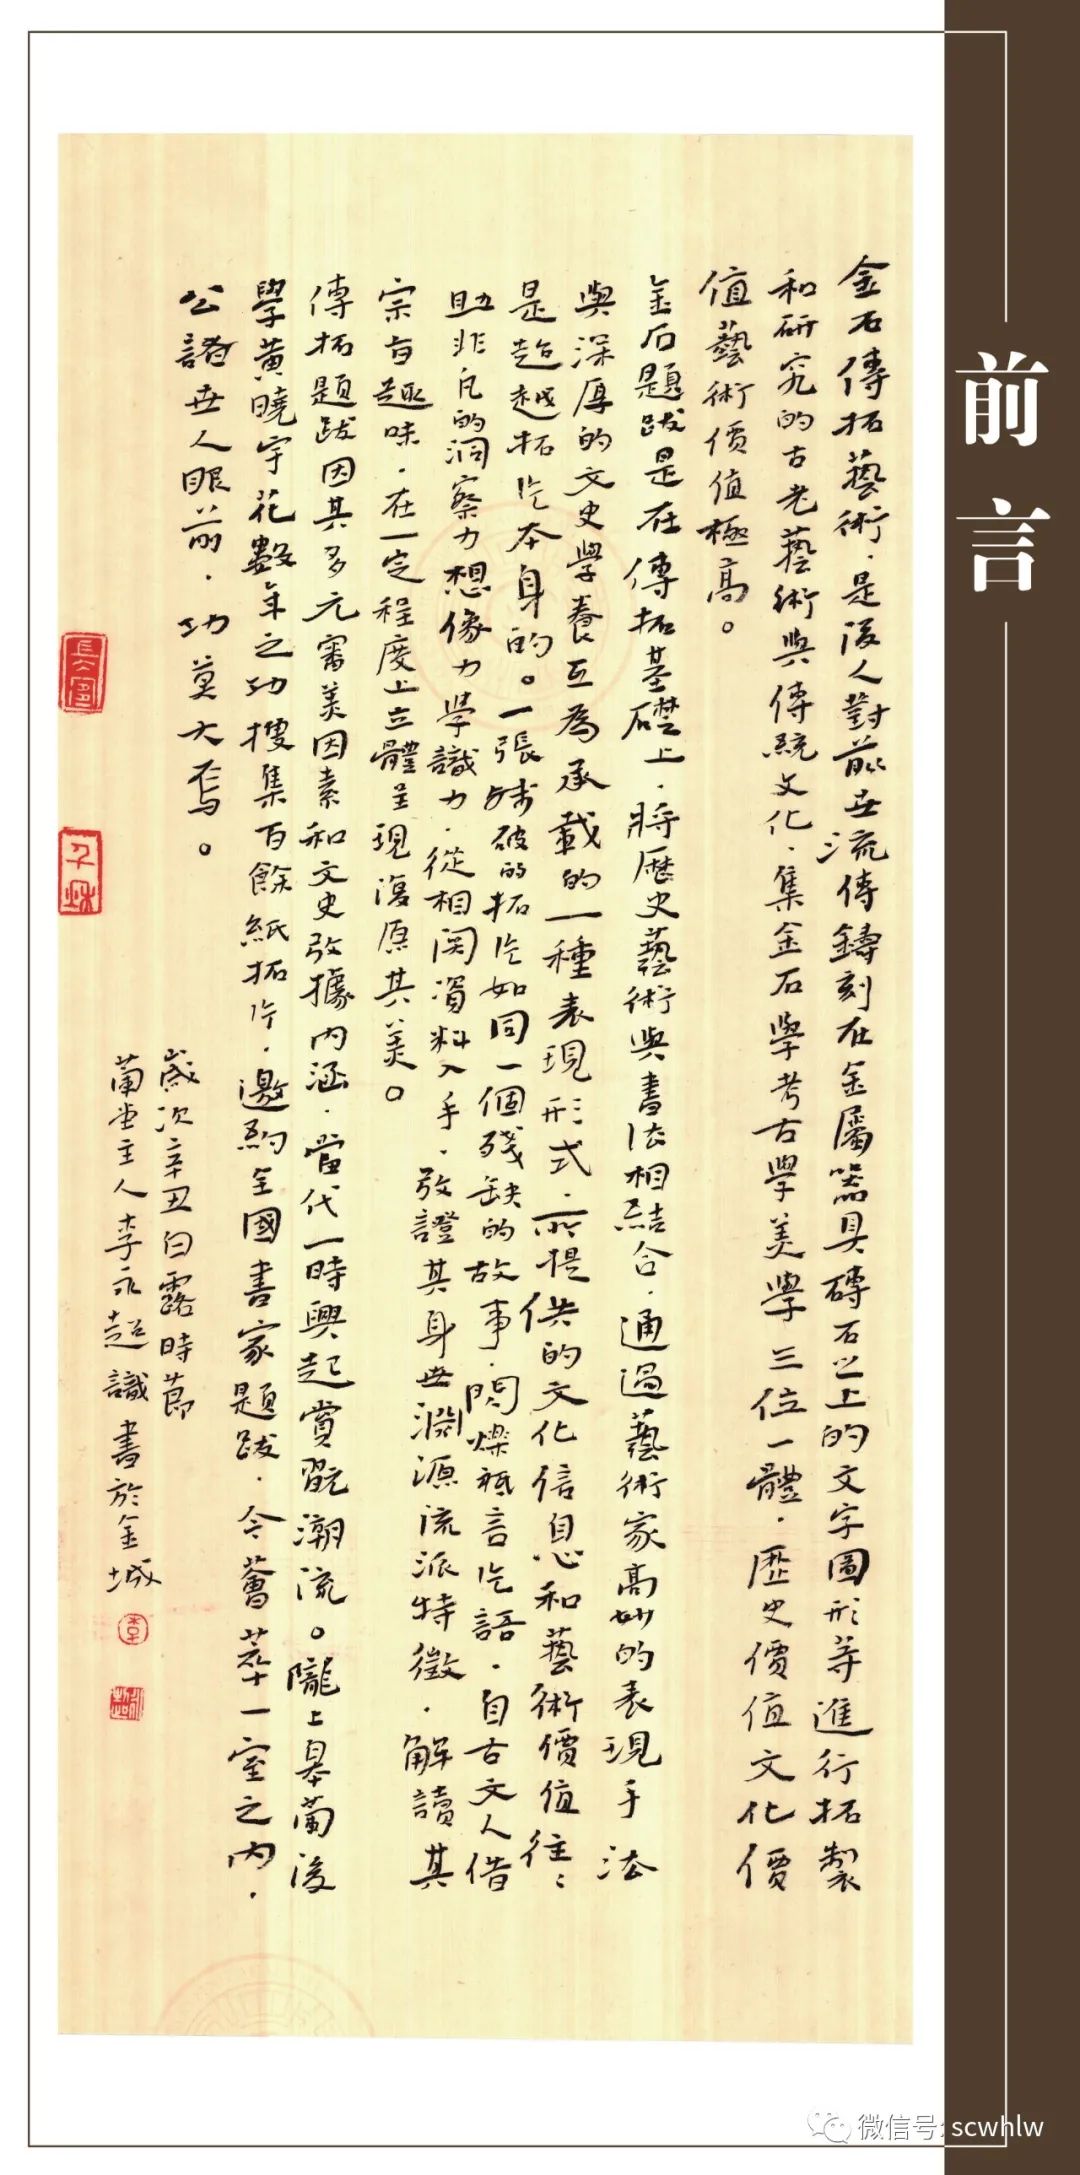 前言
金石傳拓藝術，是後人對前世流傳鑄刻在金屬器具磚石之上的文字圖形等進行拓製
和研究的古老藝術與傳統文化，集金石學考古學美學三位一體，歷史價值文化價
值藝術價值極高。
金石題跋是在傳拓基礎上，將歷史藝術與書法相結合，通過藝術家高妙的表現手法
與深厚的文史學養互為承載的一種表現形式，所提供的文化信息和藝術價值往〻
是超越拓片本身的。一張殘破的拓片如同一個殘缺的故事，閃爍祗言片語，自古文人借
助非凡的洞察力想像力學識力，從相関資料入手，攷證其身世淵源流派特徵，解讀其
宗旨趣味，在一定程度上立體呈現復原其美。
傳拓題跋因其多元審美因素和文史攷據内涵，當代一時興起賞翫潮流。隴上皋蘭後
學黄曉宇花數年之功搜集百餘紙拓片，邀約全國書家題跋，今薈萃一室之内，
公諸世人眼前，功莫大焉。
歲次辛丑白露時節
蘭堂主人李永超識書於金城
李
微信号: scwhlw